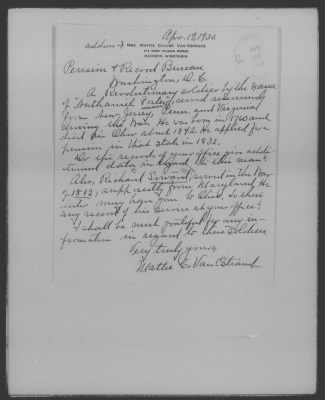 Apr. 19, 1930.
address →) MRS. MATTIE CULVER VAN OSTRAND
MADISON, WISCONSIN
Pension & Record Bureau
Washington, D.C.
A Revolutionary soldier by the name
of "Nathaniel Foster", served
from New Jersey, Penn. and Virginia
during the War. He was born in 1760 and
died in Ohio about 1842. He applied for a
pension in that State in 1832.
Do the records of your office give addi-
tional data in regard to this man?
Also, Richard served in the War
of 1812, supposedly from Maryland. He
later to Ohio. Is there
any record of his service at your office?
I shall be most grateful for any in-
formation in regard to these soldiers
Very truly yours,
Mattie C. Van Ostrand